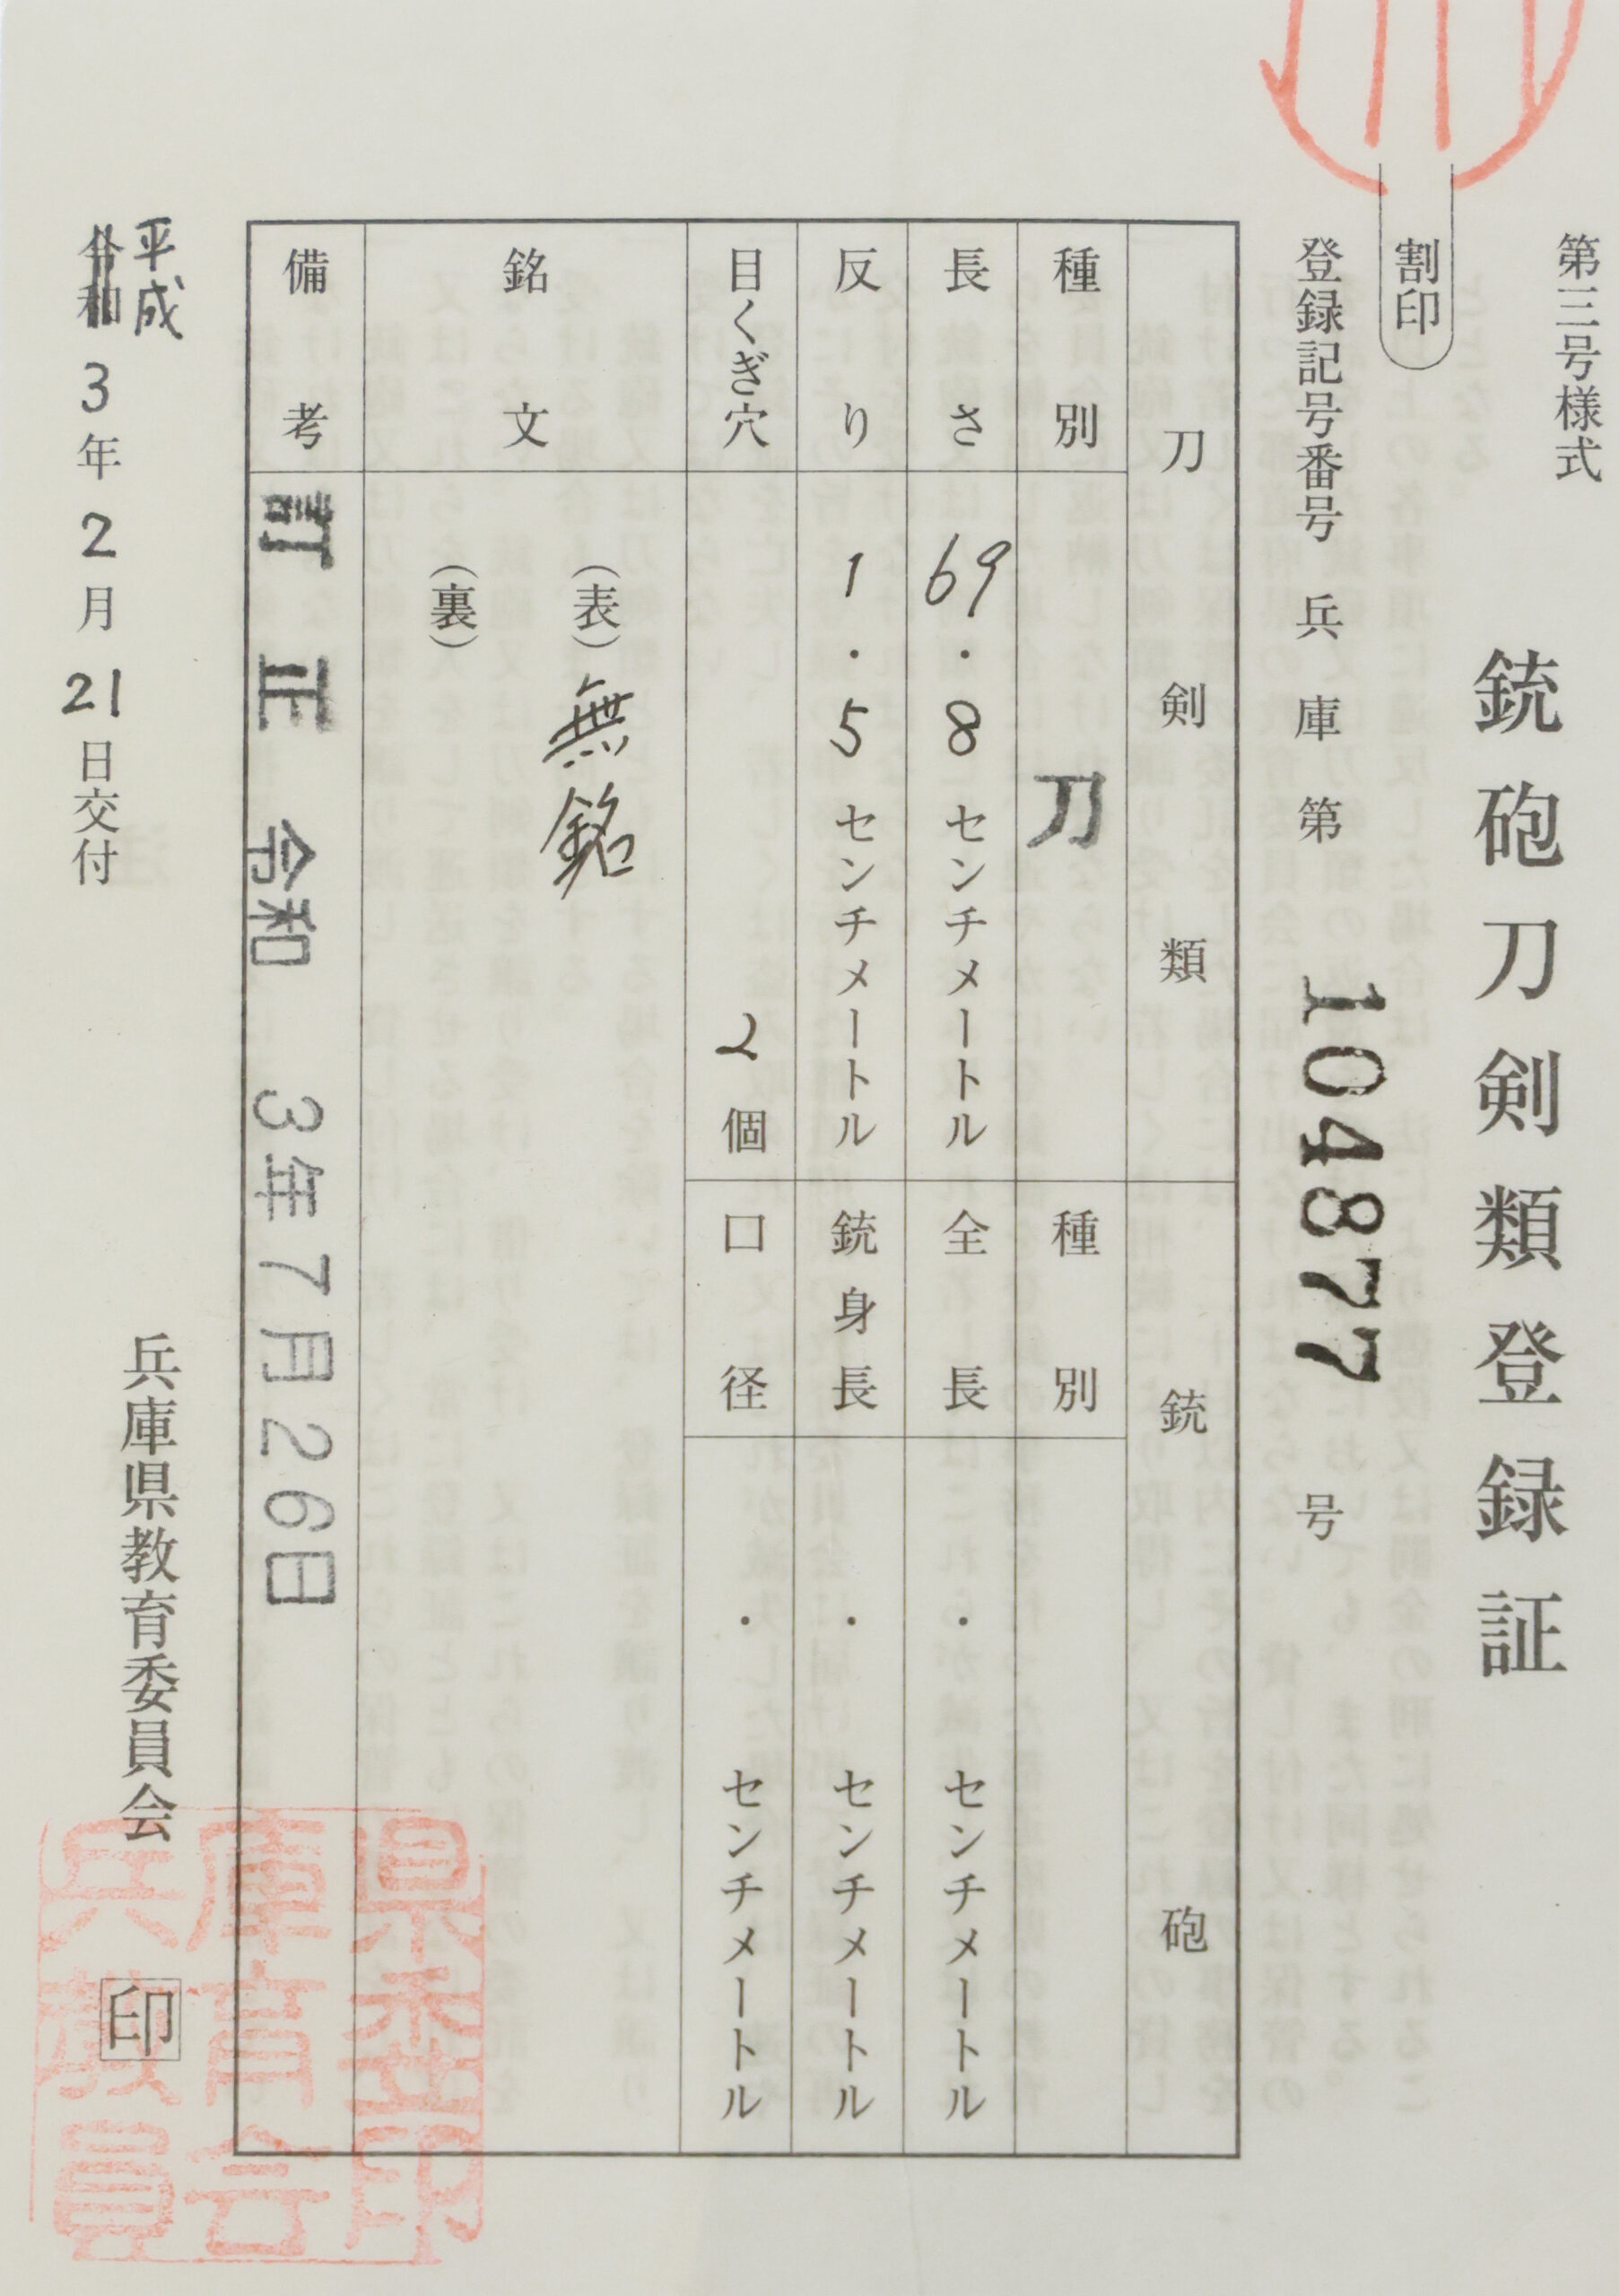 第三号様式
銃砲刀剣類登録証
割印
登録記号番号 兵庫第 104877 号
刀剣類 銃砲
種別 刀 種別
長さ 69.8センチメートル 全長 ．センチメートル
反り 1.5センチメートル 銃身長 ．センチメートル
目くぎ穴 2個 口径 ．センチメートル
銘文 (表) 無銘
(裏)
備考 訂正 令和 3年7月26日
平成
令和3年2月21日交付
兵庫県教育委員会 印
兵庫県教育委員会印